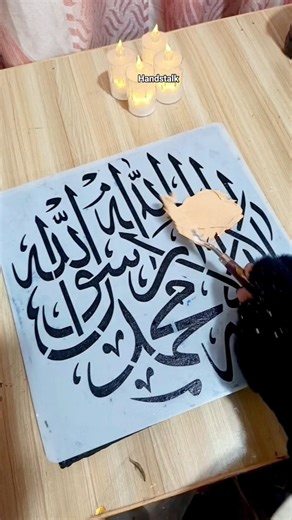 Handstalk
لا اله الا الله
محمد رسول الله